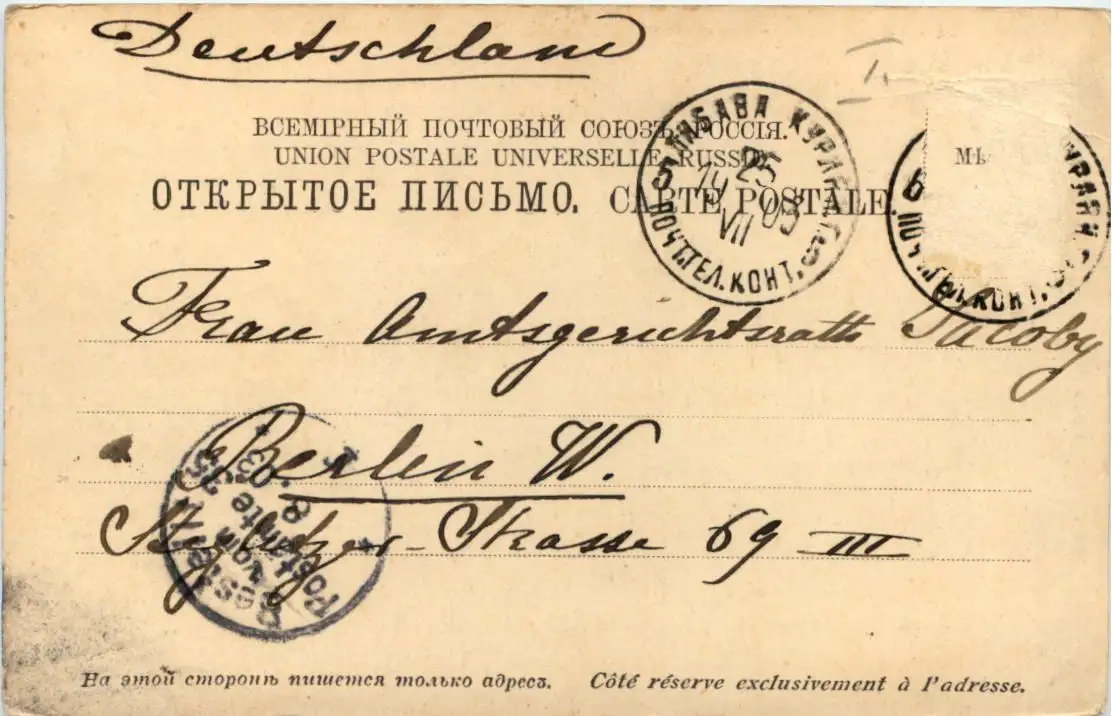 Deutschland
ВСЕМІРНЫЙ ПОЧТОВЫЙ СОЮЗЪ. РОССІЯ.
UNION POSTALE UNIVERSELLE. RUSSIE.
ОТКРЫТОЕ ПИСЬМО. CARTE POSTALE
ЛИБАВА КУРЛЯН. Г.
25
19 03
VII
ПОЧТ. ТЕЛ. КОНТ.
Frau Amtsgerichtsrath Jacoby
Berlin W.
Strasse 69 III
Bestellt
vom
Postamte 35
8
03
На этой сторонѣ пишется только адресъ. Côté réserve exclusivement à l'adresse.